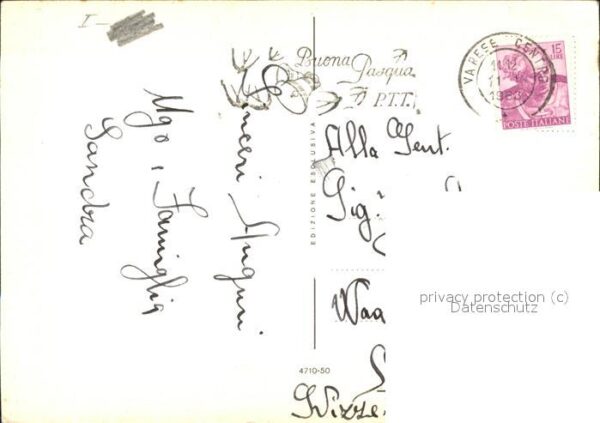 I-
Buona
Pasqua
P.T.T.
VARESE CENTRO
15
LIRE
POSTE ITALIANE
Sinceri Auguri
Ugo, Famiglia
Sandra
EDIZIONE ESCLUSIVA
4710-50
Alla Gent.
Sig.
Waa
Svizze
privacy protection (c)
Datenschutz